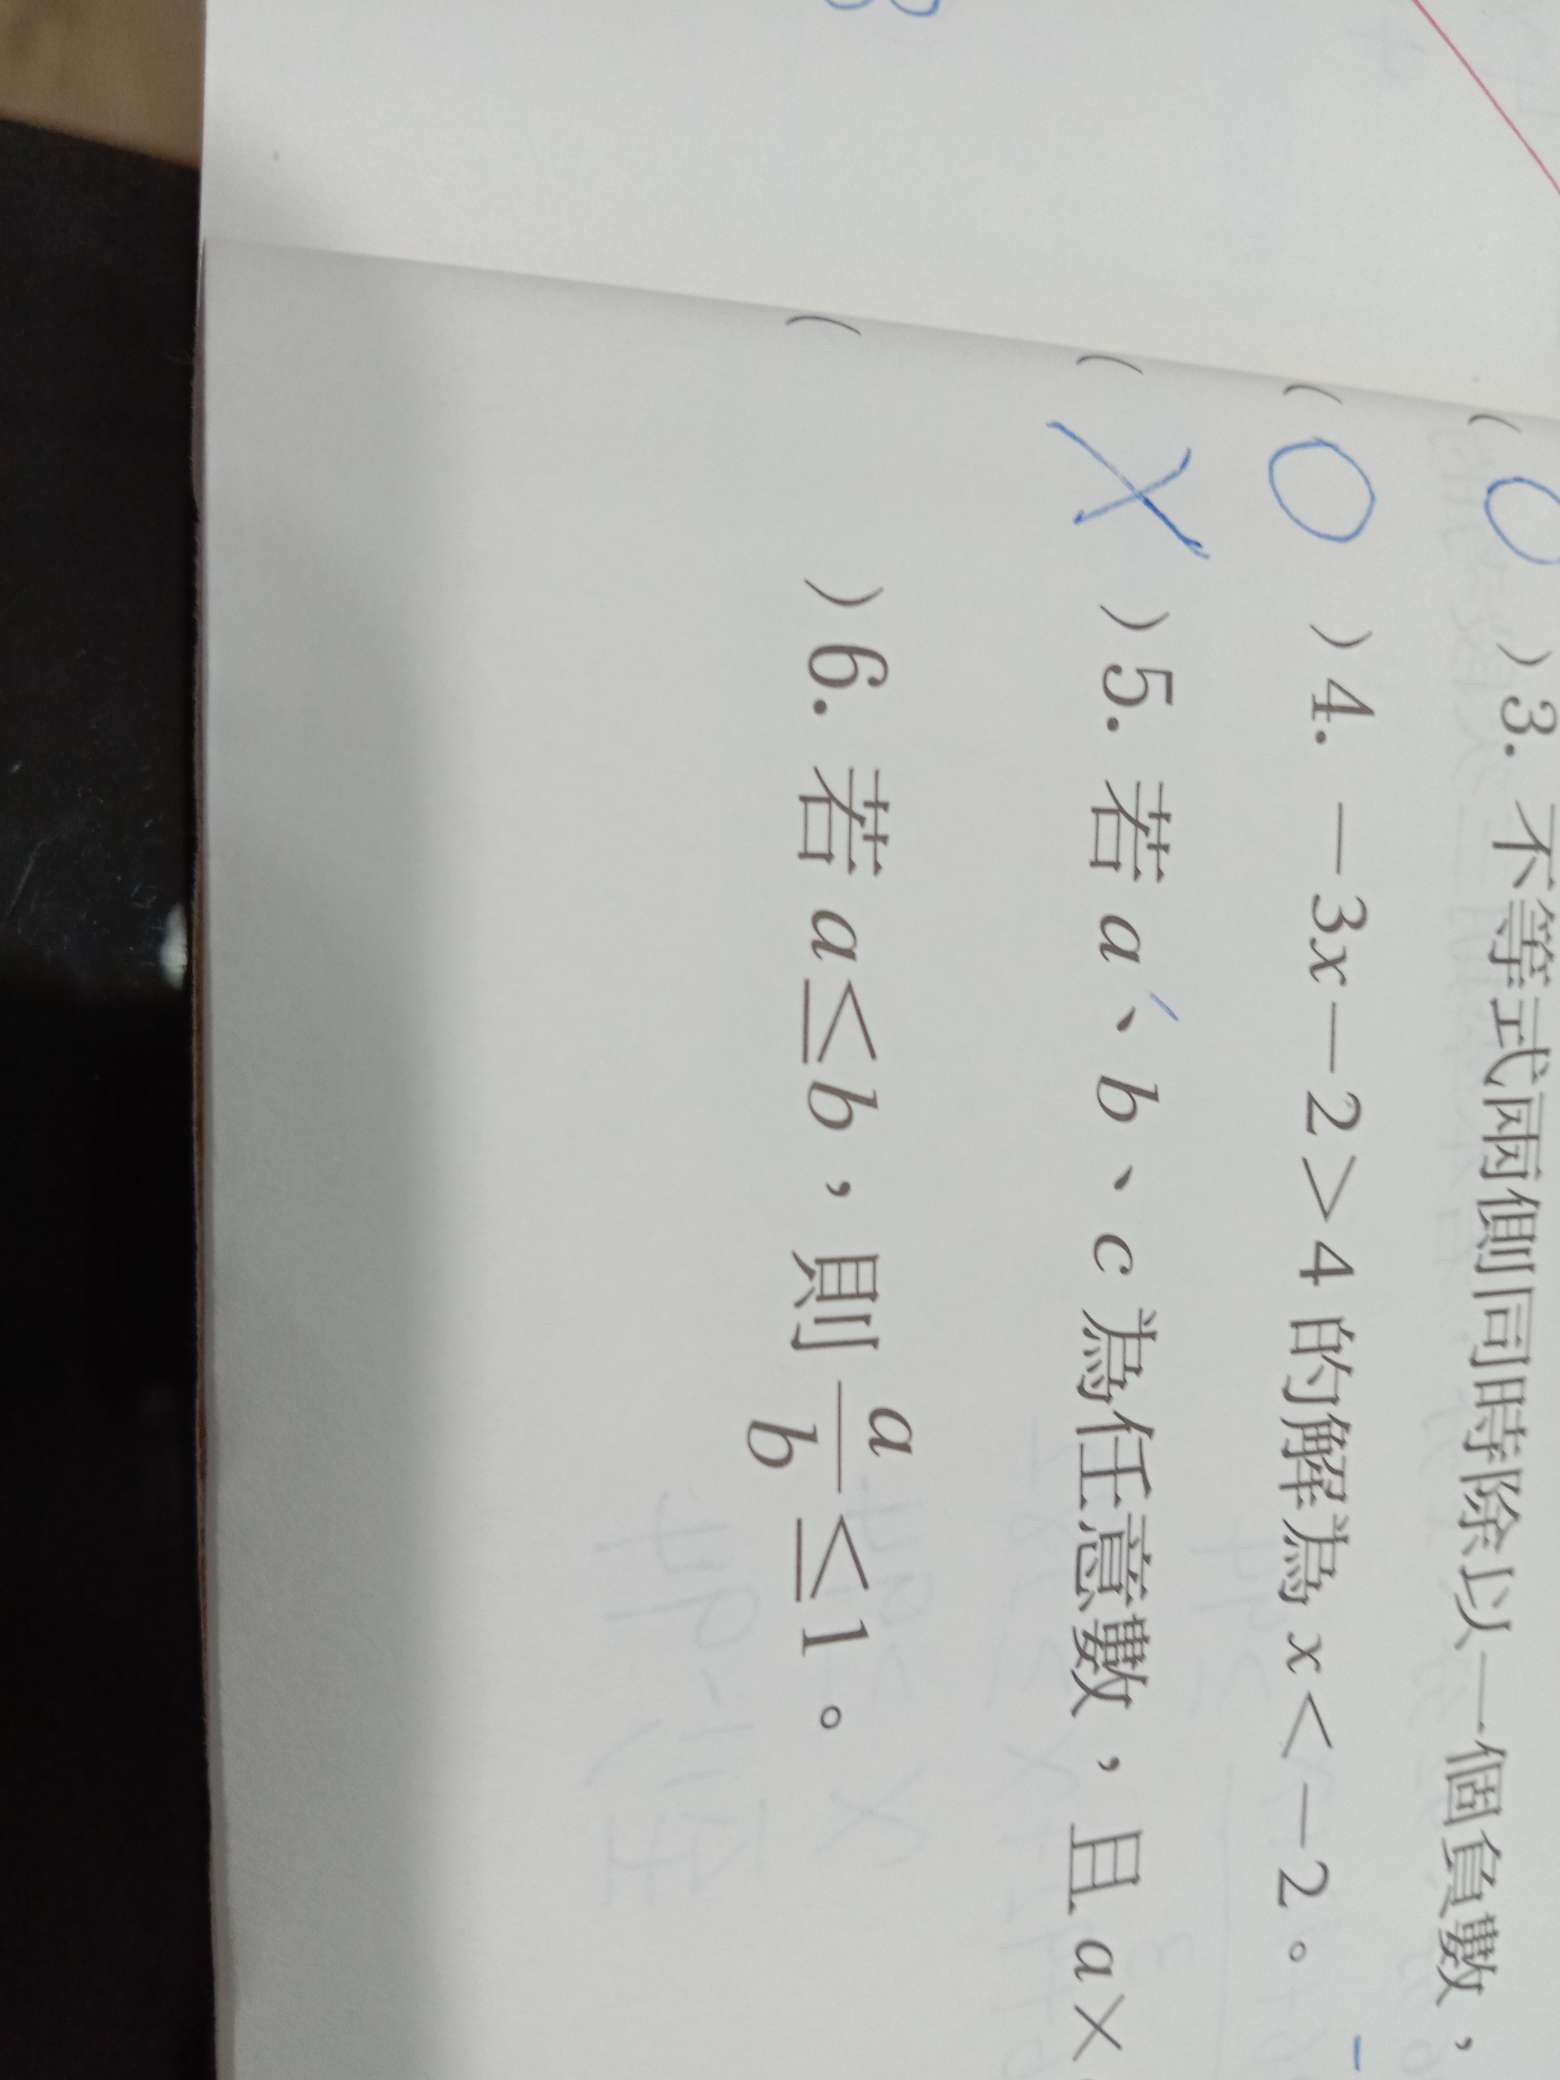 ( O ) 3. 不等式兩側同時除以一個負數，
( O ) 4. －3x－2＞4 的解為 x＜－2。
( X ) 5. 若 a、b、c 為任意數，且 a×
(    ) 6. 若 a≤b，則 a/b ≤1。